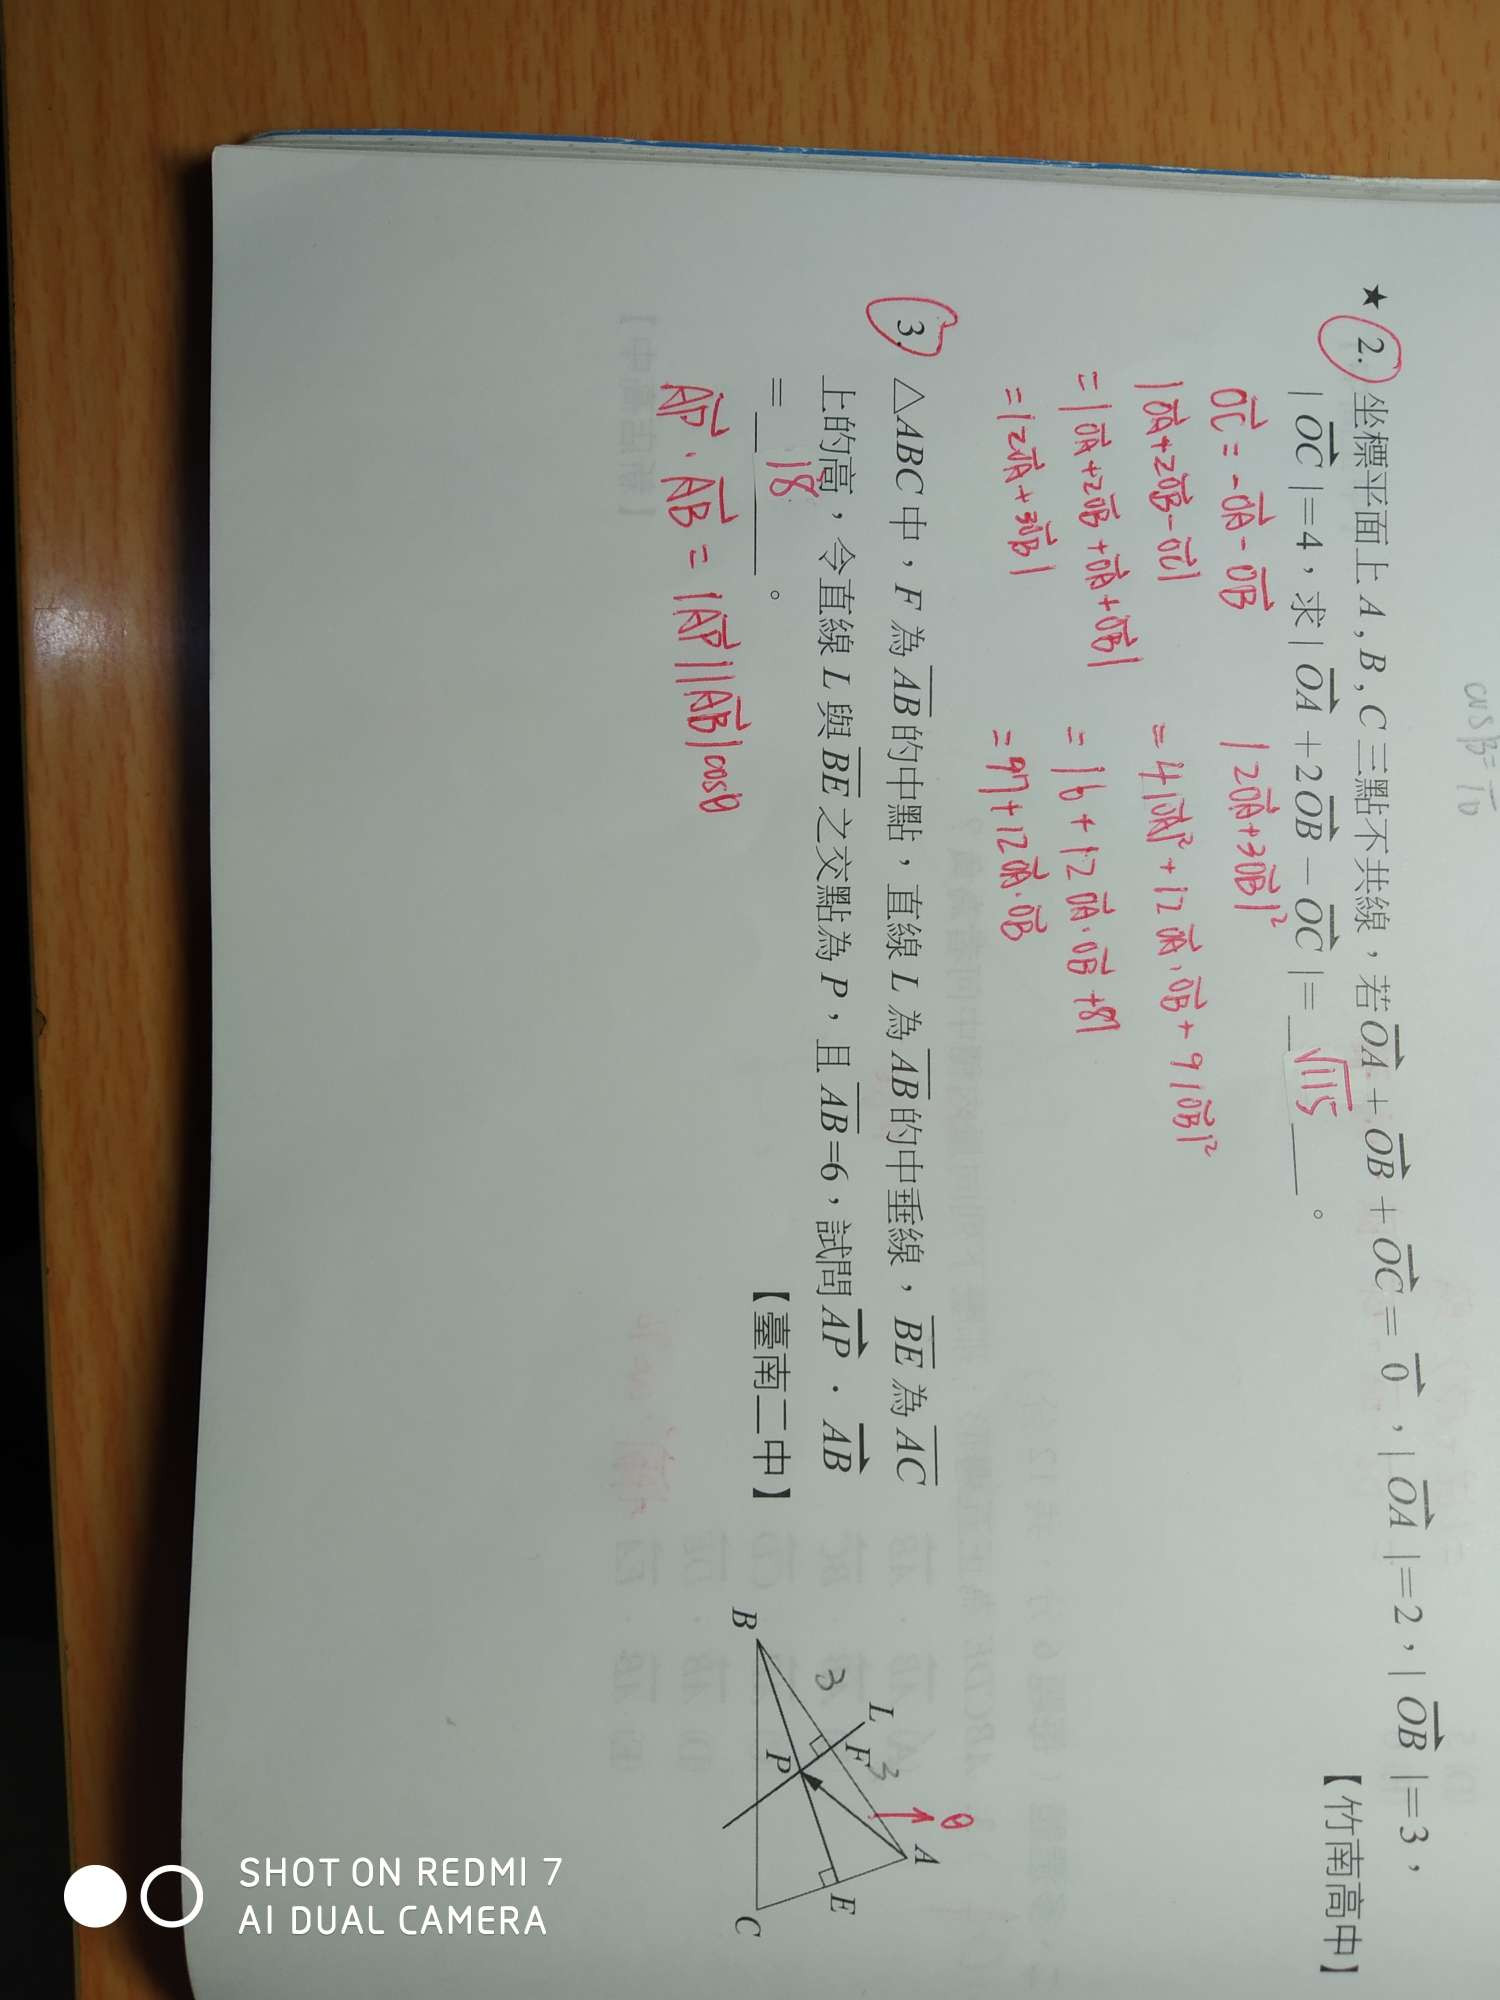 cosβ=
★ 2. 坐標平面上 A , B , C 三點不共線，若 OA + OB + OC = 0 , | OA |=2 , | OB |=3 ,
| OC |=4，求 | OA +2 OB − OC |= √115 。
【竹南高中】
OC = -OA - OB
|OA+2OB-OC|
=|OA+2OB+OA+OB|
=|2OA+3OB|
|2OA+3OB|²
=4|OA|²+12OA·OB+9|OB|²
=16+12OA·OB+81
=97+12OA·OB
3. △ABC 中，F 為 AB 的中點，直線 L 為 AB 的中垂線，BE 為 AC
上的高，令直線 L 與 BE 之交點為 P，且 AB=6，試問 AP · AB
= 18 。
【臺南二中】
AP·AB=|AP||AB|cosθ
θ
A
L
F
3
3
E
P
B
C
SHOT ON REDMI 7
AI DUAL CAMERA